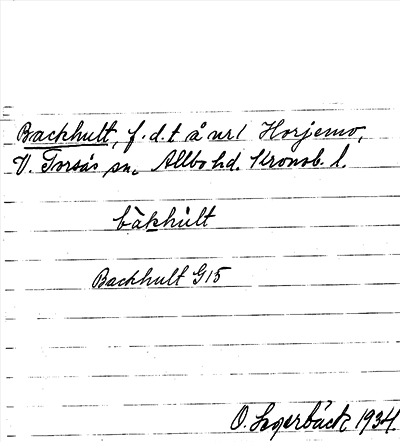 Backhult, f.d.t å nr 1 Horjemo,
V. Torsås sn. Allbo hd. Kronob. l.
bàkhùlt
Backhult G15
O. Lagerbäck 1934.